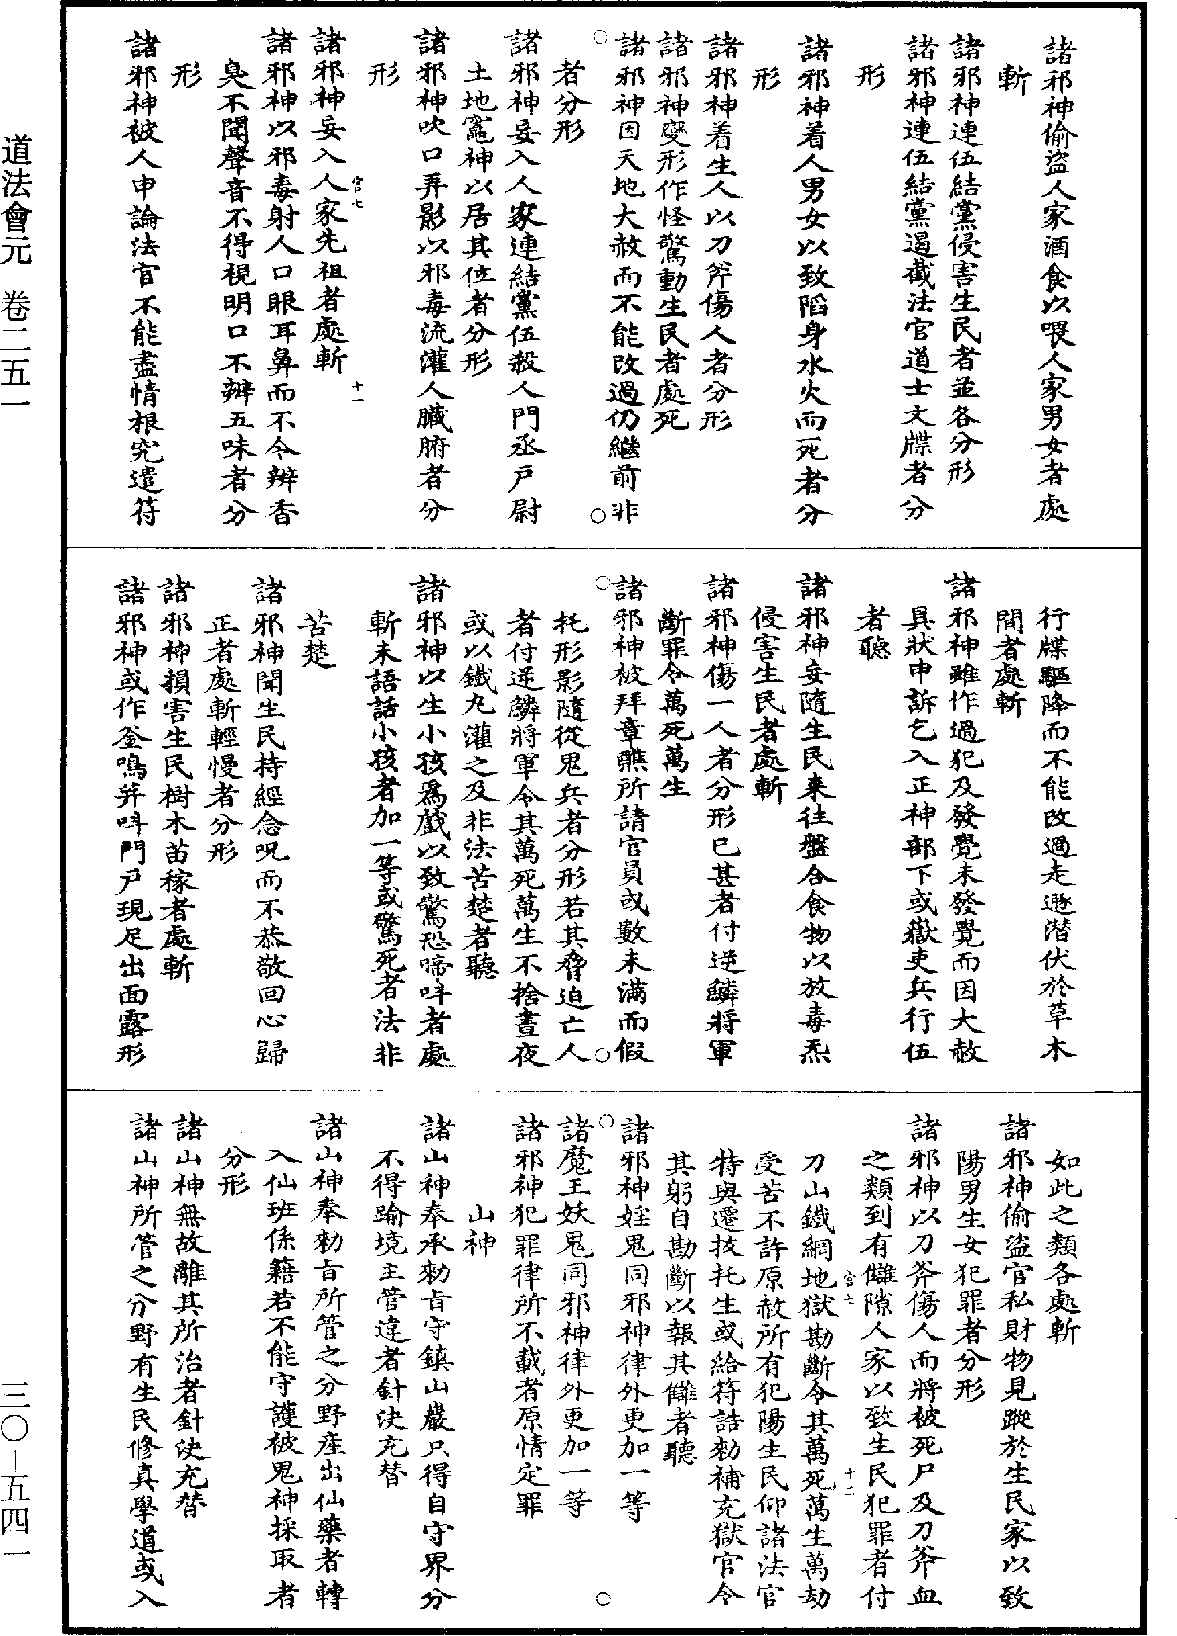 諸邪神偷盜人家酒食以喂人家男女者處
斬
諸邪神連伍結黨侵害生民者並各分形
諸邪神連伍結黨遏截法官道士文牒者分
形
諸邪神着人男女以致陷身水火而死者分
形
諸邪神着生人以刀斧傷人者分形
諸邪神變形作怪驚動生民者處死
諸邪神因天地大赦而不能改過仍繼前非
者分形
諸邪神妄入人家連結黨伍殺人門丞戶尉
土地竈神以居其位者分形
諸邪神吹口弄影以邪毒流灌人臟腑者分
形
諸邪神妄入人家先祖者處斬
官七
十一
諸邪神以邪毒射人口眼耳鼻而不令辨香
臭不聞聲音不得視明口不辨五味者分
形
諸邪神被人申論法官不能盡情根究遣符
行牒驅降而不能改過走遯潛伏於草木
間者處斬
諸邪神雖作過犯及發覺未發覺而因大赦
具狀申訴乞入正神部下或嶽吏兵行伍
者聽
諸邪神妄隨生民來往盤合食物以放毒炁
侵害生民者處斬
諸邪神傷一人者分形已甚者付逆鱗將軍
斷罪令萬死萬生
諸邪神被拜章醮所請官員或數未滿而假
托形影隨從鬼兵者分形若其脅迫亡人
者付逆鱗將軍令其萬死萬生不捨晝夜
或以鐵丸灌之及非法苦楚者聽
諸邪神以生小孩爲戲以致驚恐啼呌者處
斬未語話小孩者加一等或驚死者法非
苦楚
諸邪神聞生民持經念呪而不恭敬回心歸
正者處斬輕慢者分形
諸邪神損害生民樹木苗稼者處斬
諸邪神或作釜鳴井呌門戶現足出面露形
如此之類各處斬
諸邪神偷盜官私財物見蹤於生民家以致
陽男生女犯罪者分形
諸邪神以刀斧傷人而將被死尸及刀斧血
之類到有讎隙人家以致生民犯罪者付
刀山鐵網地獄勘斷令其萬死萬生萬劫
官七
十二
受苦不許原赦所有犯陽生民仰諸法官
特與遷拔托生或給符誥勑補充獄官令
其躬自勘斷以報其讎者聽
諸邪神婬鬼同邪神律外更加一等
諸魔王妖鬼同邪神律外更加一等
諸邪神犯罪律所不載者原情定罪
山神
諸山神奉承勑旨守鎮山巖只得自守界分
不得踰境主管違者針決充替
諸山神奉勑旨所管之分野産出仙藥者轉
入仙班係籍若不能守護被鬼神採取者
分形
諸山神無故離其所治者針決充替
諸山神所管之分野有生民修真學道或入
道法會元　卷二五一
三〇—五四一